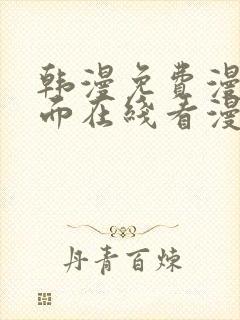 韩漫免费漫
而在线看漫
丹青百炼